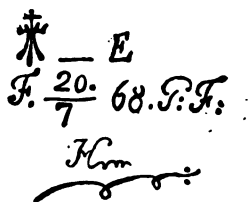 — E
F. 20./7 68. P: F:
Hm